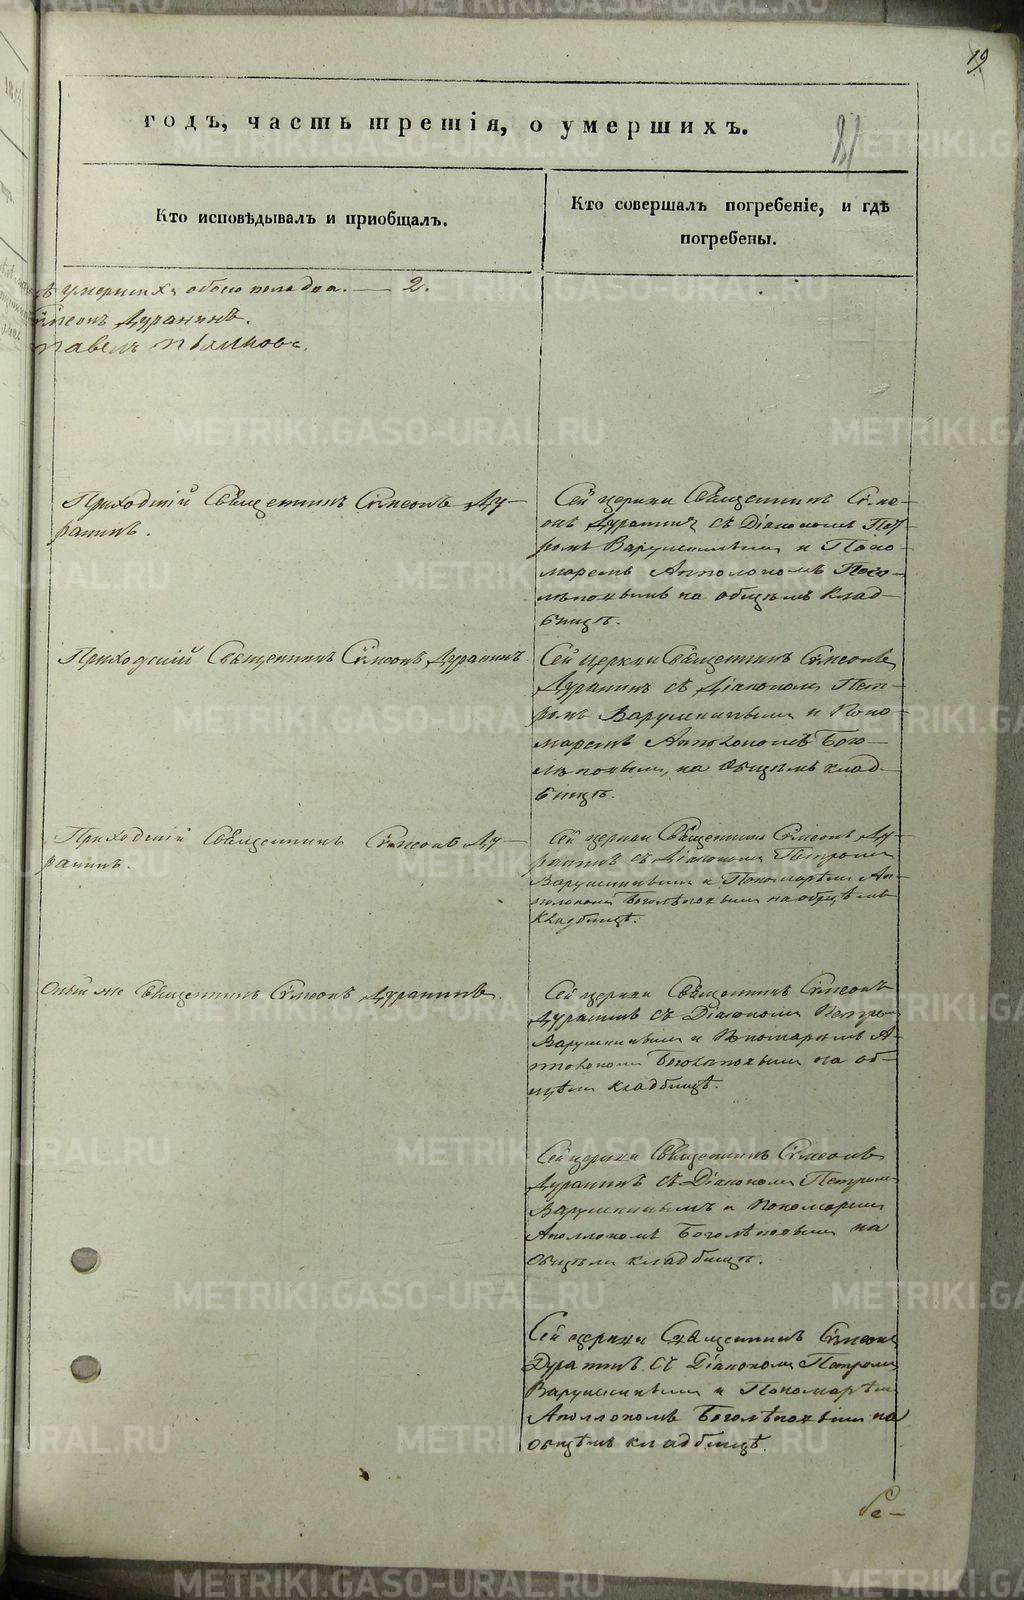 19
годъ, часть третія, о умершихъ.
81
Кто исповѣдывалъ и пріобщалъ.
Кто совершалъ погребеніе, и гдѣ
погребены.
умершихъ обоего пола два. — 2.
Симеонъ Дуранинъ.
Павелъ
Приходскій Священникъ Симеонъ Ду-
ранинъ.
Сей церкви Священникъ Симе-
онъ Дуранинъ съ Діакономъ Пет-
ромъ Варушкинымъ и Поно-
маремъ Апполономъ Бого-
лѣповымъ на общемъ клад-
бищѣ.
Приходскій Священникъ Симеонъ Дуранинъ.
Сей церкви Священникъ Симеонъ
Дуранинъ съ Діакономъ Пет-
ромъ Варушкинымъ и Поно-
маремъ Апполономъ Бого-
лѣповымъ, на общемъ клад-
бищѣ.
Приходскій Священникъ Симеонъ Ду-
ранинъ.
Сей церкви Священникъ Симеонъ Ду-
ранинъ съ Діакономъ Петромъ
Варушкинымъ и Пономарѣмъ Ап-
полономъ Боголѣповымъ на общѣмъ
кладбищѣ.
Оный же Священникъ Симеонъ Дуранинъ.
Сей церкви Священникъ Симеонъ
Дуранинъ съ Діакономъ Петромъ
Варушкинымъ и Пономаремъ А-
пполономъ Боголѣповымъ на об-
щѣмъ кладбищѣ.
Сей церкви Священникъ Симеонъ
Дуранинъ съ Діакономъ Петромъ
Варушкинымъ и Пономаремъ
Аполлономъ Боголѣповымъ на
общѣмъ кладбищѣ.
Сей церкви Священникъ Симеонъ
Дуранинъ съ Діакономъ Петромъ
Варушкинымъ и Пономарѣмъ
Аполлономъ Боголѣповымъ на
общѣмъ кладбищѣ.
Се-
METRIKI.GASO-URAL.RU